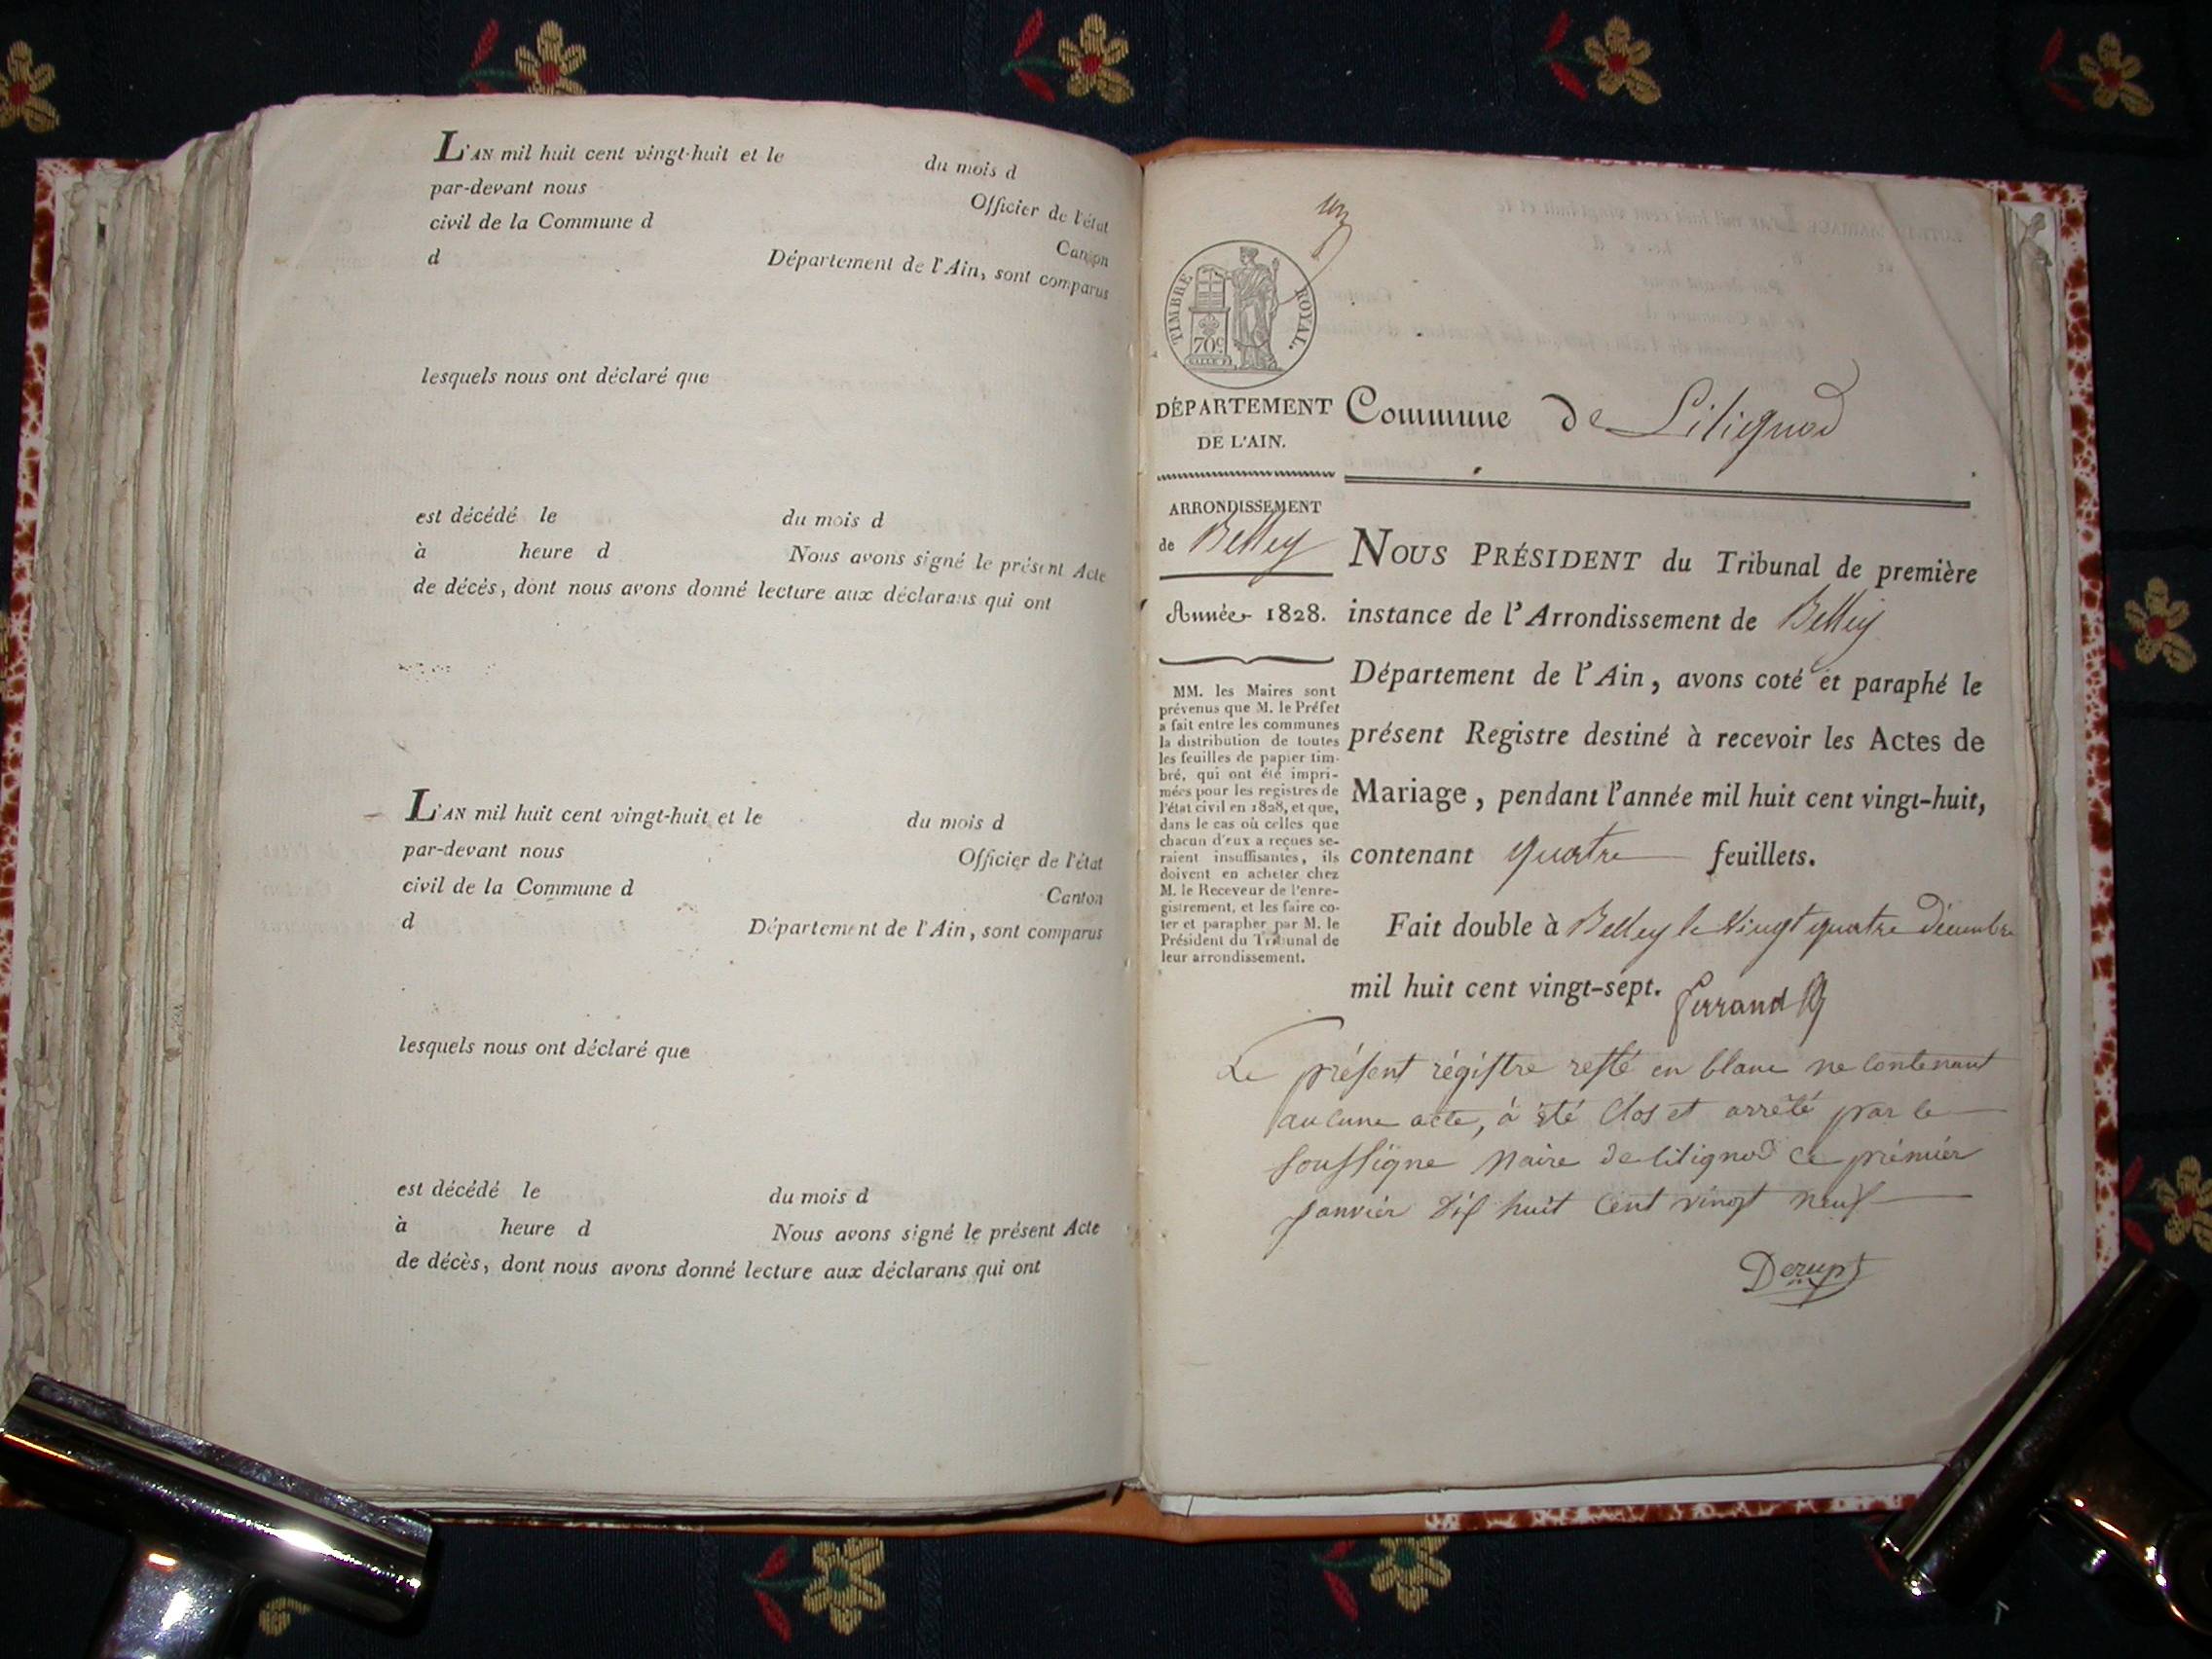 L'AN mil huit cent vingt-huit et le du mois d
par-devant nous Officier de l'état
civil de la Commune d Canton
d Département de l'Ain, sont comparus
lesquels nous ont déclaré que
est décédé le du mois d
à heure d Nous avons signé le présent Acte
de décès, dont nous avons donné lecture aux déclarans qui ont
L'AN mil huit cent vingt-huit et le du mois d
par-devant nous Officier de l'état
civil de la Commune d Canton
d Département de l'Ain, sont comparus
lesquels nous ont déclaré que
est décédé le du mois d
à heure d Nous avons signé le présent Acte
de décès, dont nous avons donné lecture aux déclarans qui ont
TIMBRE ROYAL.
70c
DÉPARTEMENT
DE L'AIN.
ARRONDISSEMENT
de Belley
Année 1828.
MM. les Maires sont
prévenus que M. le Préfet
a fait entre les communes
la distribution de toutes
les feuilles de papier tim-
bré, qui ont été impri-
mées pour les registres de
l'état civil en 1828, et que,
dans le cas où celles que
chacun d'eux a reçues se-
raient insuffisantes, ils
doivent en acheter chez
M. le Receveur de l'enre-
gistrement, et les faire co-
ter et parapher par M. le
Président du Tribunal de
leur arrondissement.
Commune de Litignod
NOUS PRÉSIDENT du Tribunal de première
instance de l'Arrondissement de Belley
Département de l'Ain, avons coté et paraphé le
présent Registre destiné à recevoir les Actes de
Mariage, pendant l'année mil huit cent vingt-huit,
contenant quatre feuillets.
Fait double à Belley le Vingt quatre décembre
mil huit cent vingt-sept. ferrand
Le présent régistre resté en blanc ne contenant
aucune acte, à été Clos et arrêté par le
soussigne Maire de litignod ce prémier
Janvier dix huit cent vingt neuf
Derupt